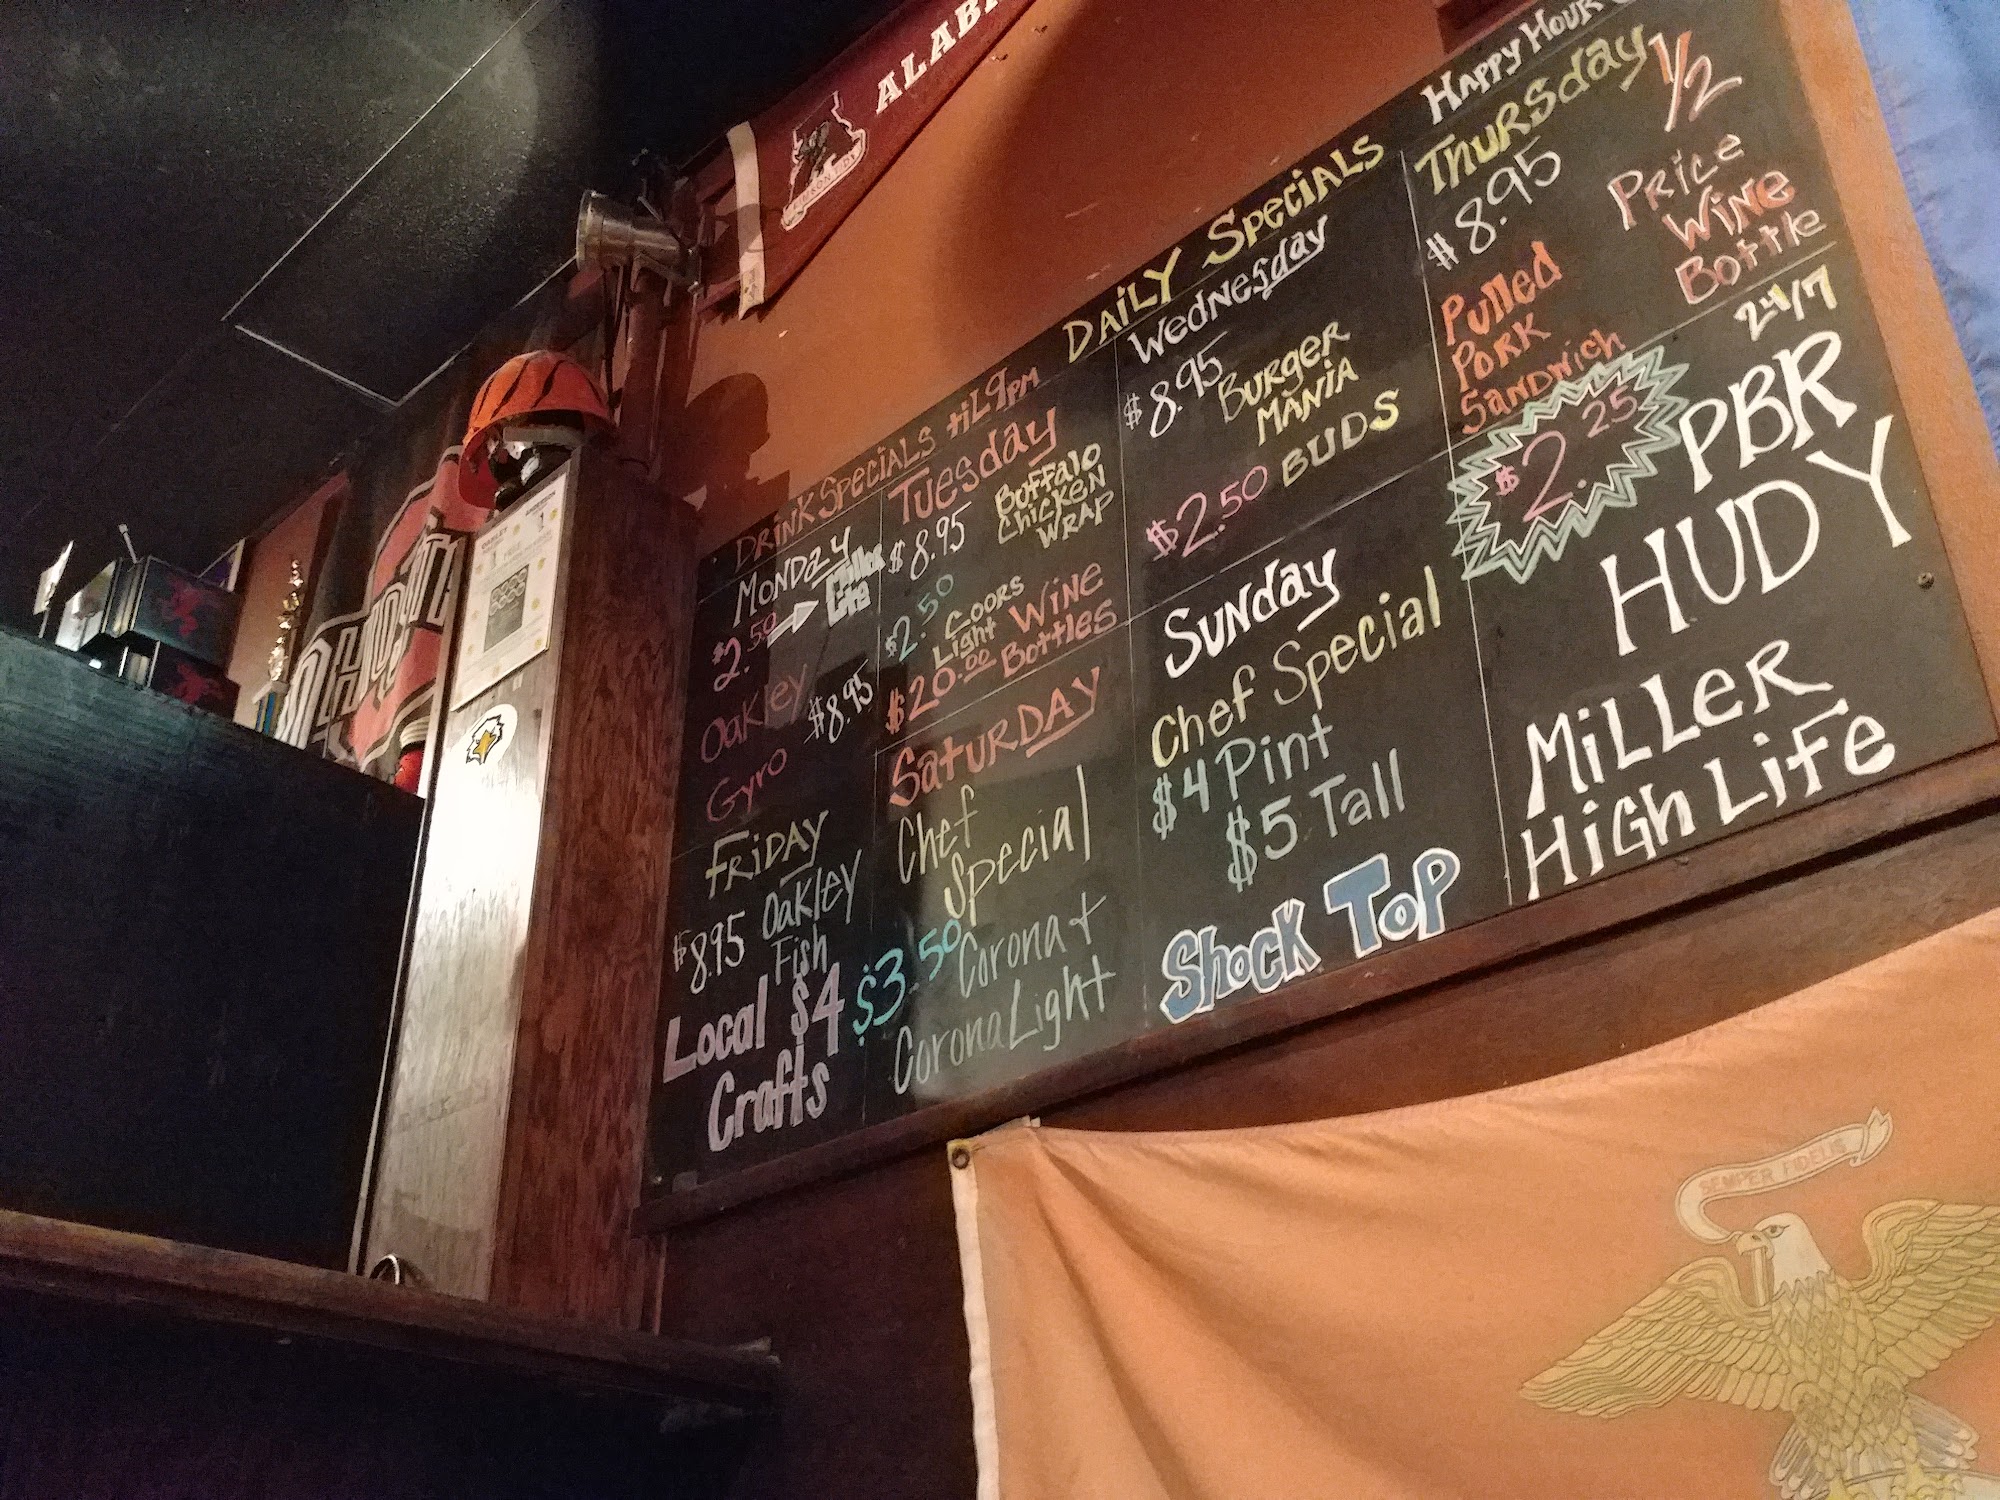 ALABA
DAILY SPECIALS
HAPPY HOUR
DRINK SPECIALS tiL 9PM
MONDAY
$2.50 → Miller Lite
Oakley
Gyro $8.95
TUESday
$8.95 Buffalo
CHicKEN
WRAP
$2.50 COORS
Light
$20.00 WiNE
Bottles
WedNesday
$8.95 BURGER
MANiA
$2.50 BUDS
THURSday
$8.95
Pulled
PORK
SANDWich
1/2
PRiCe
WiNE
Bottle
FRiDAY
$8.95 Oakley
Fish
Local $4
Crafts
SatURDAY
Chef
Special
$3.50 Corona +
Corona Light
SUNday
Chef Special
$4 Pint
$5 Tall
Shock Top
24/7
$2.25 PBR
HUDY
MiLLeR
HiGh LiFe
SEMPER FIDELIS